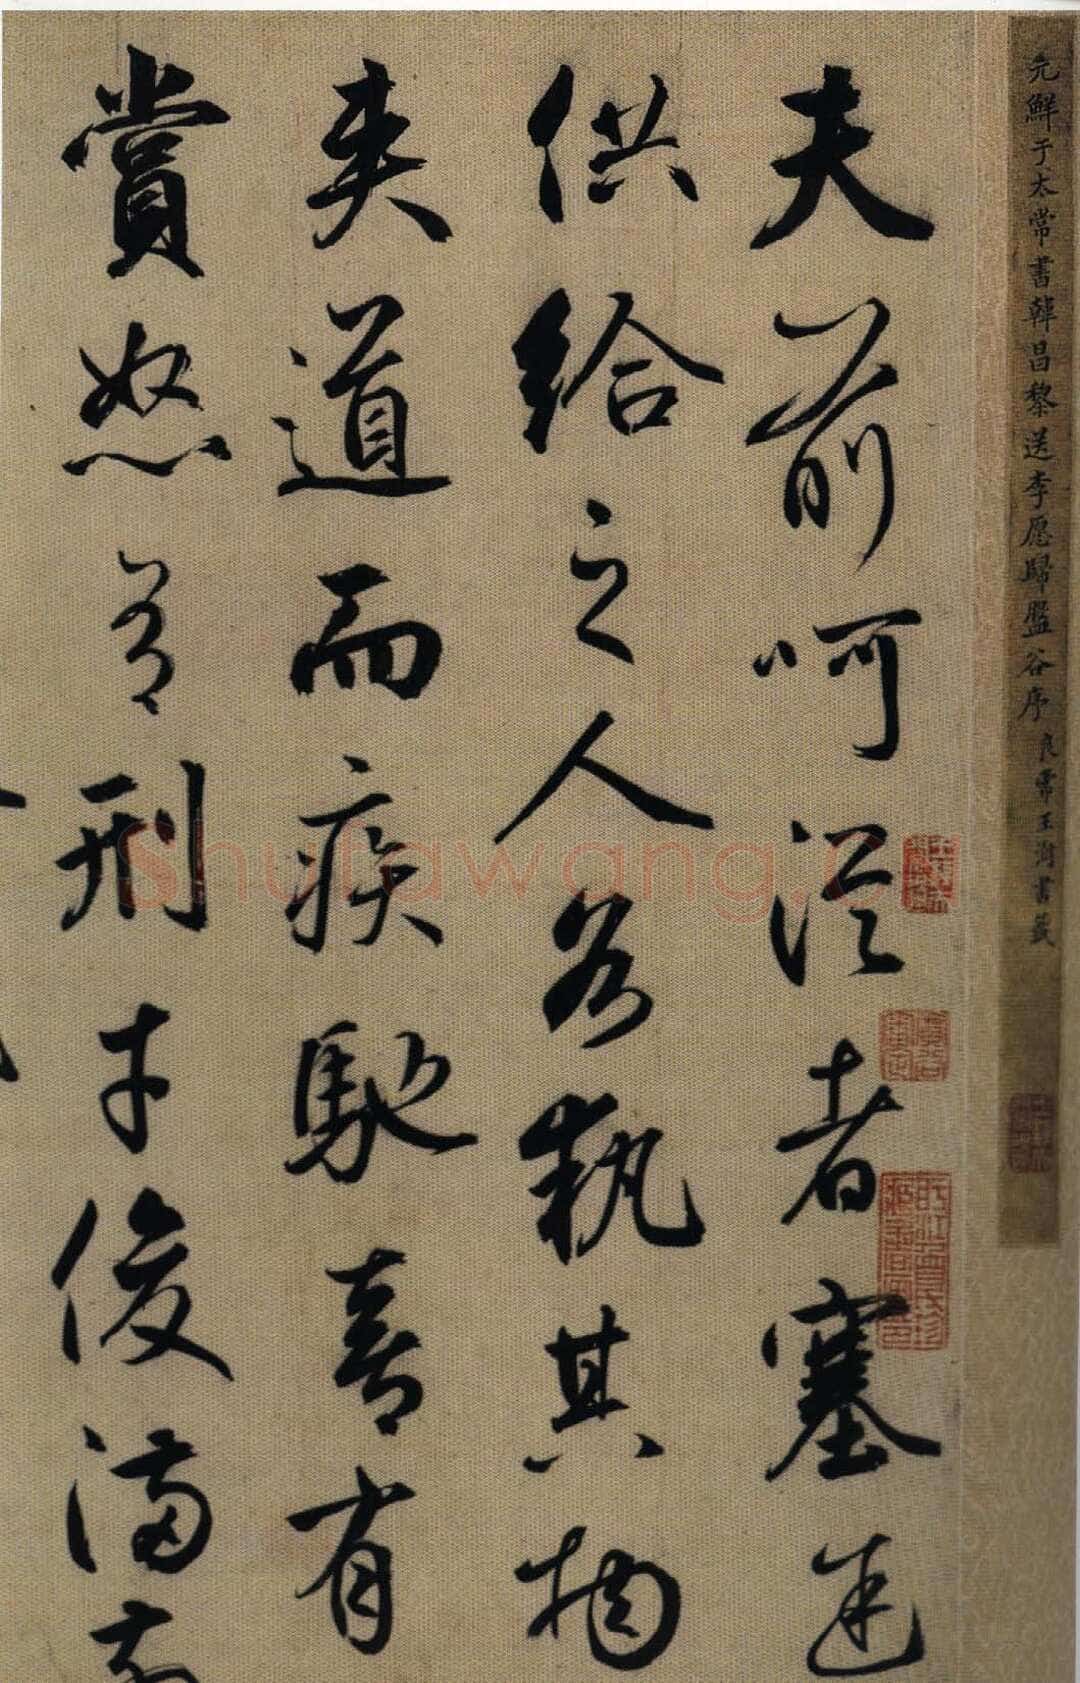 元鮮于太常書韓昌黎送李愿歸盤谷序 良常王澍書籤
夫前呵從者塞途
供給之人各執其物
夾道而疾馳喜有
賞怒有刑才俊滿